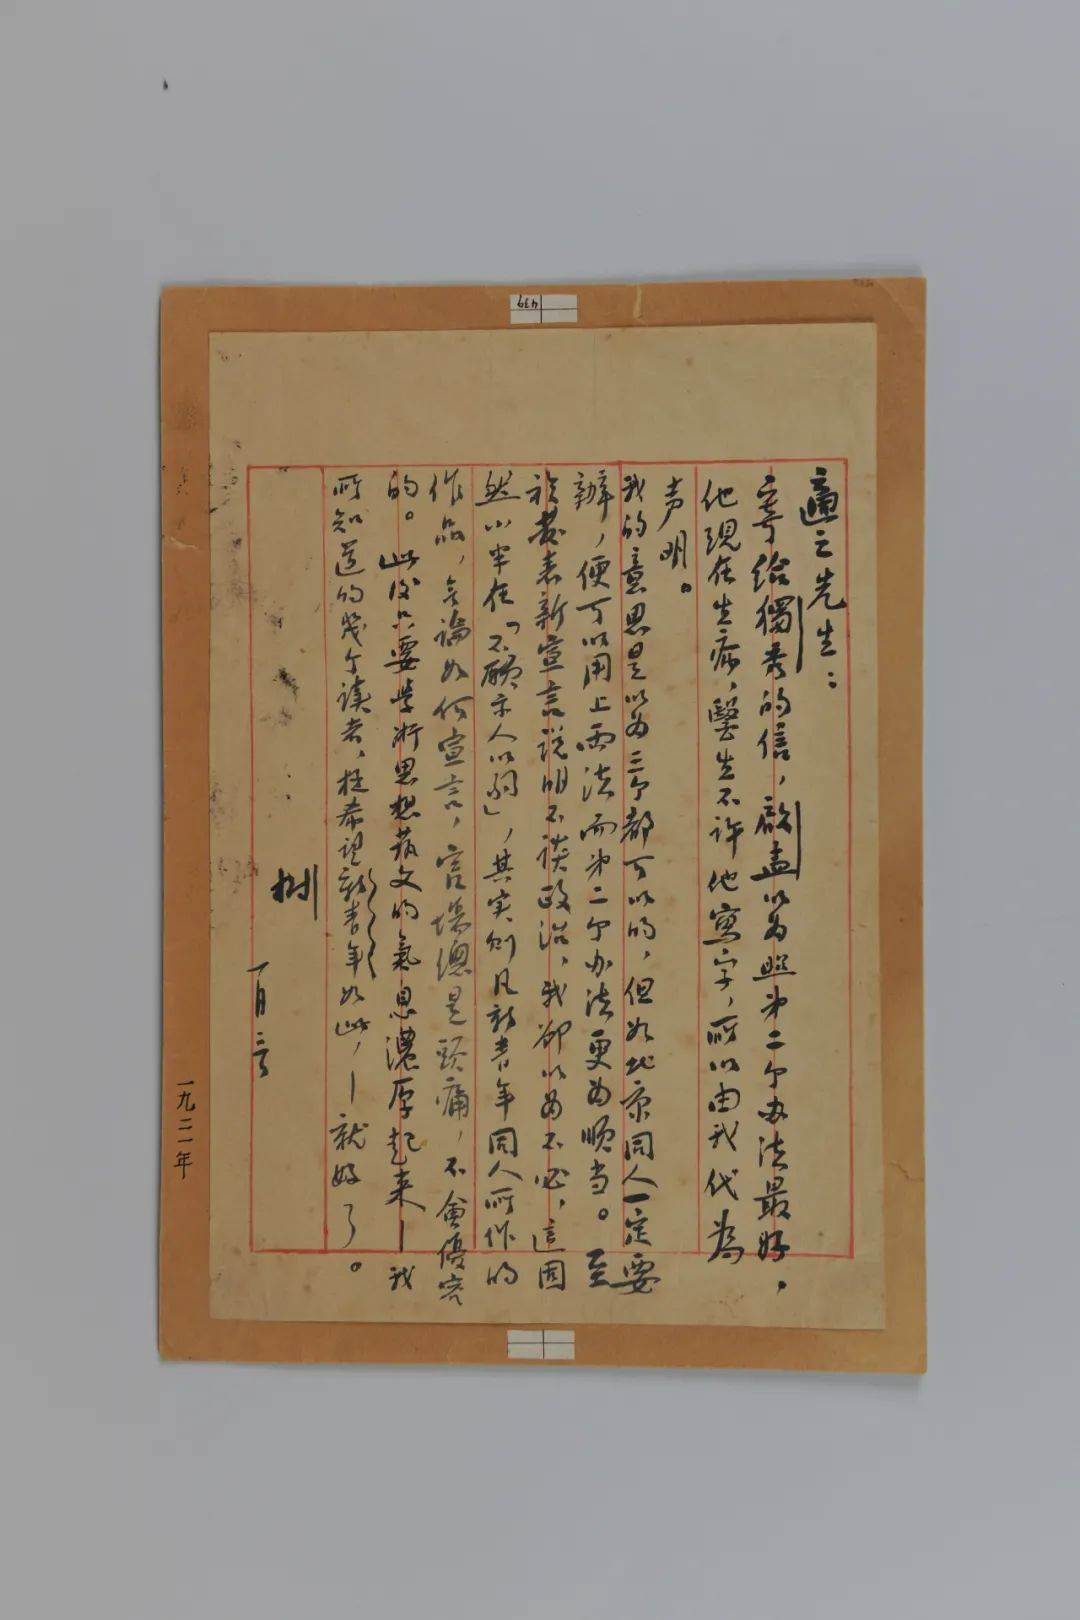 適之先生：
寄給獨秀的信，啟孟以為照第二个办法最好，
他現在生病，醫生不許他寫字，所以由我代為
声明。
我的意思是以为三个都可以的，但如北京同人一定要
辦，便可以用上兩法而第二个办法更为顺当。至
於發表新宣言說明不談政治，我卻以为不必，這固
然小半在「不願示人以弱」，其实則凡新青年同人所作的
作品，無論如何宣言，官場總是頭痛，不會優容
的。此後只要学術思想藝文的氣息濃厚起来——我
所知道的幾个讀者，極希望新青年如此，——就好了。
樹
一月三日
一九二一年
439